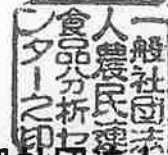 一般社団法
人農民連
食品分析セ
ンター之印